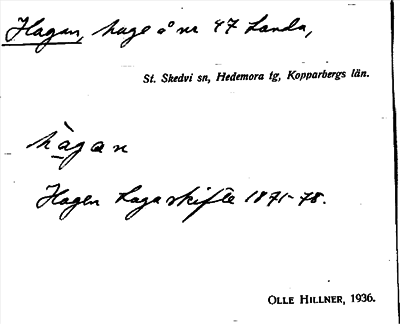 Hagan, hage å nr 47 Landa,
St. Skedvi sn, Hedemora tg, Kopparbergs län.
hàgan
Hagen Laga skifte 1871-78.
OLLE HILLNER, 1936.